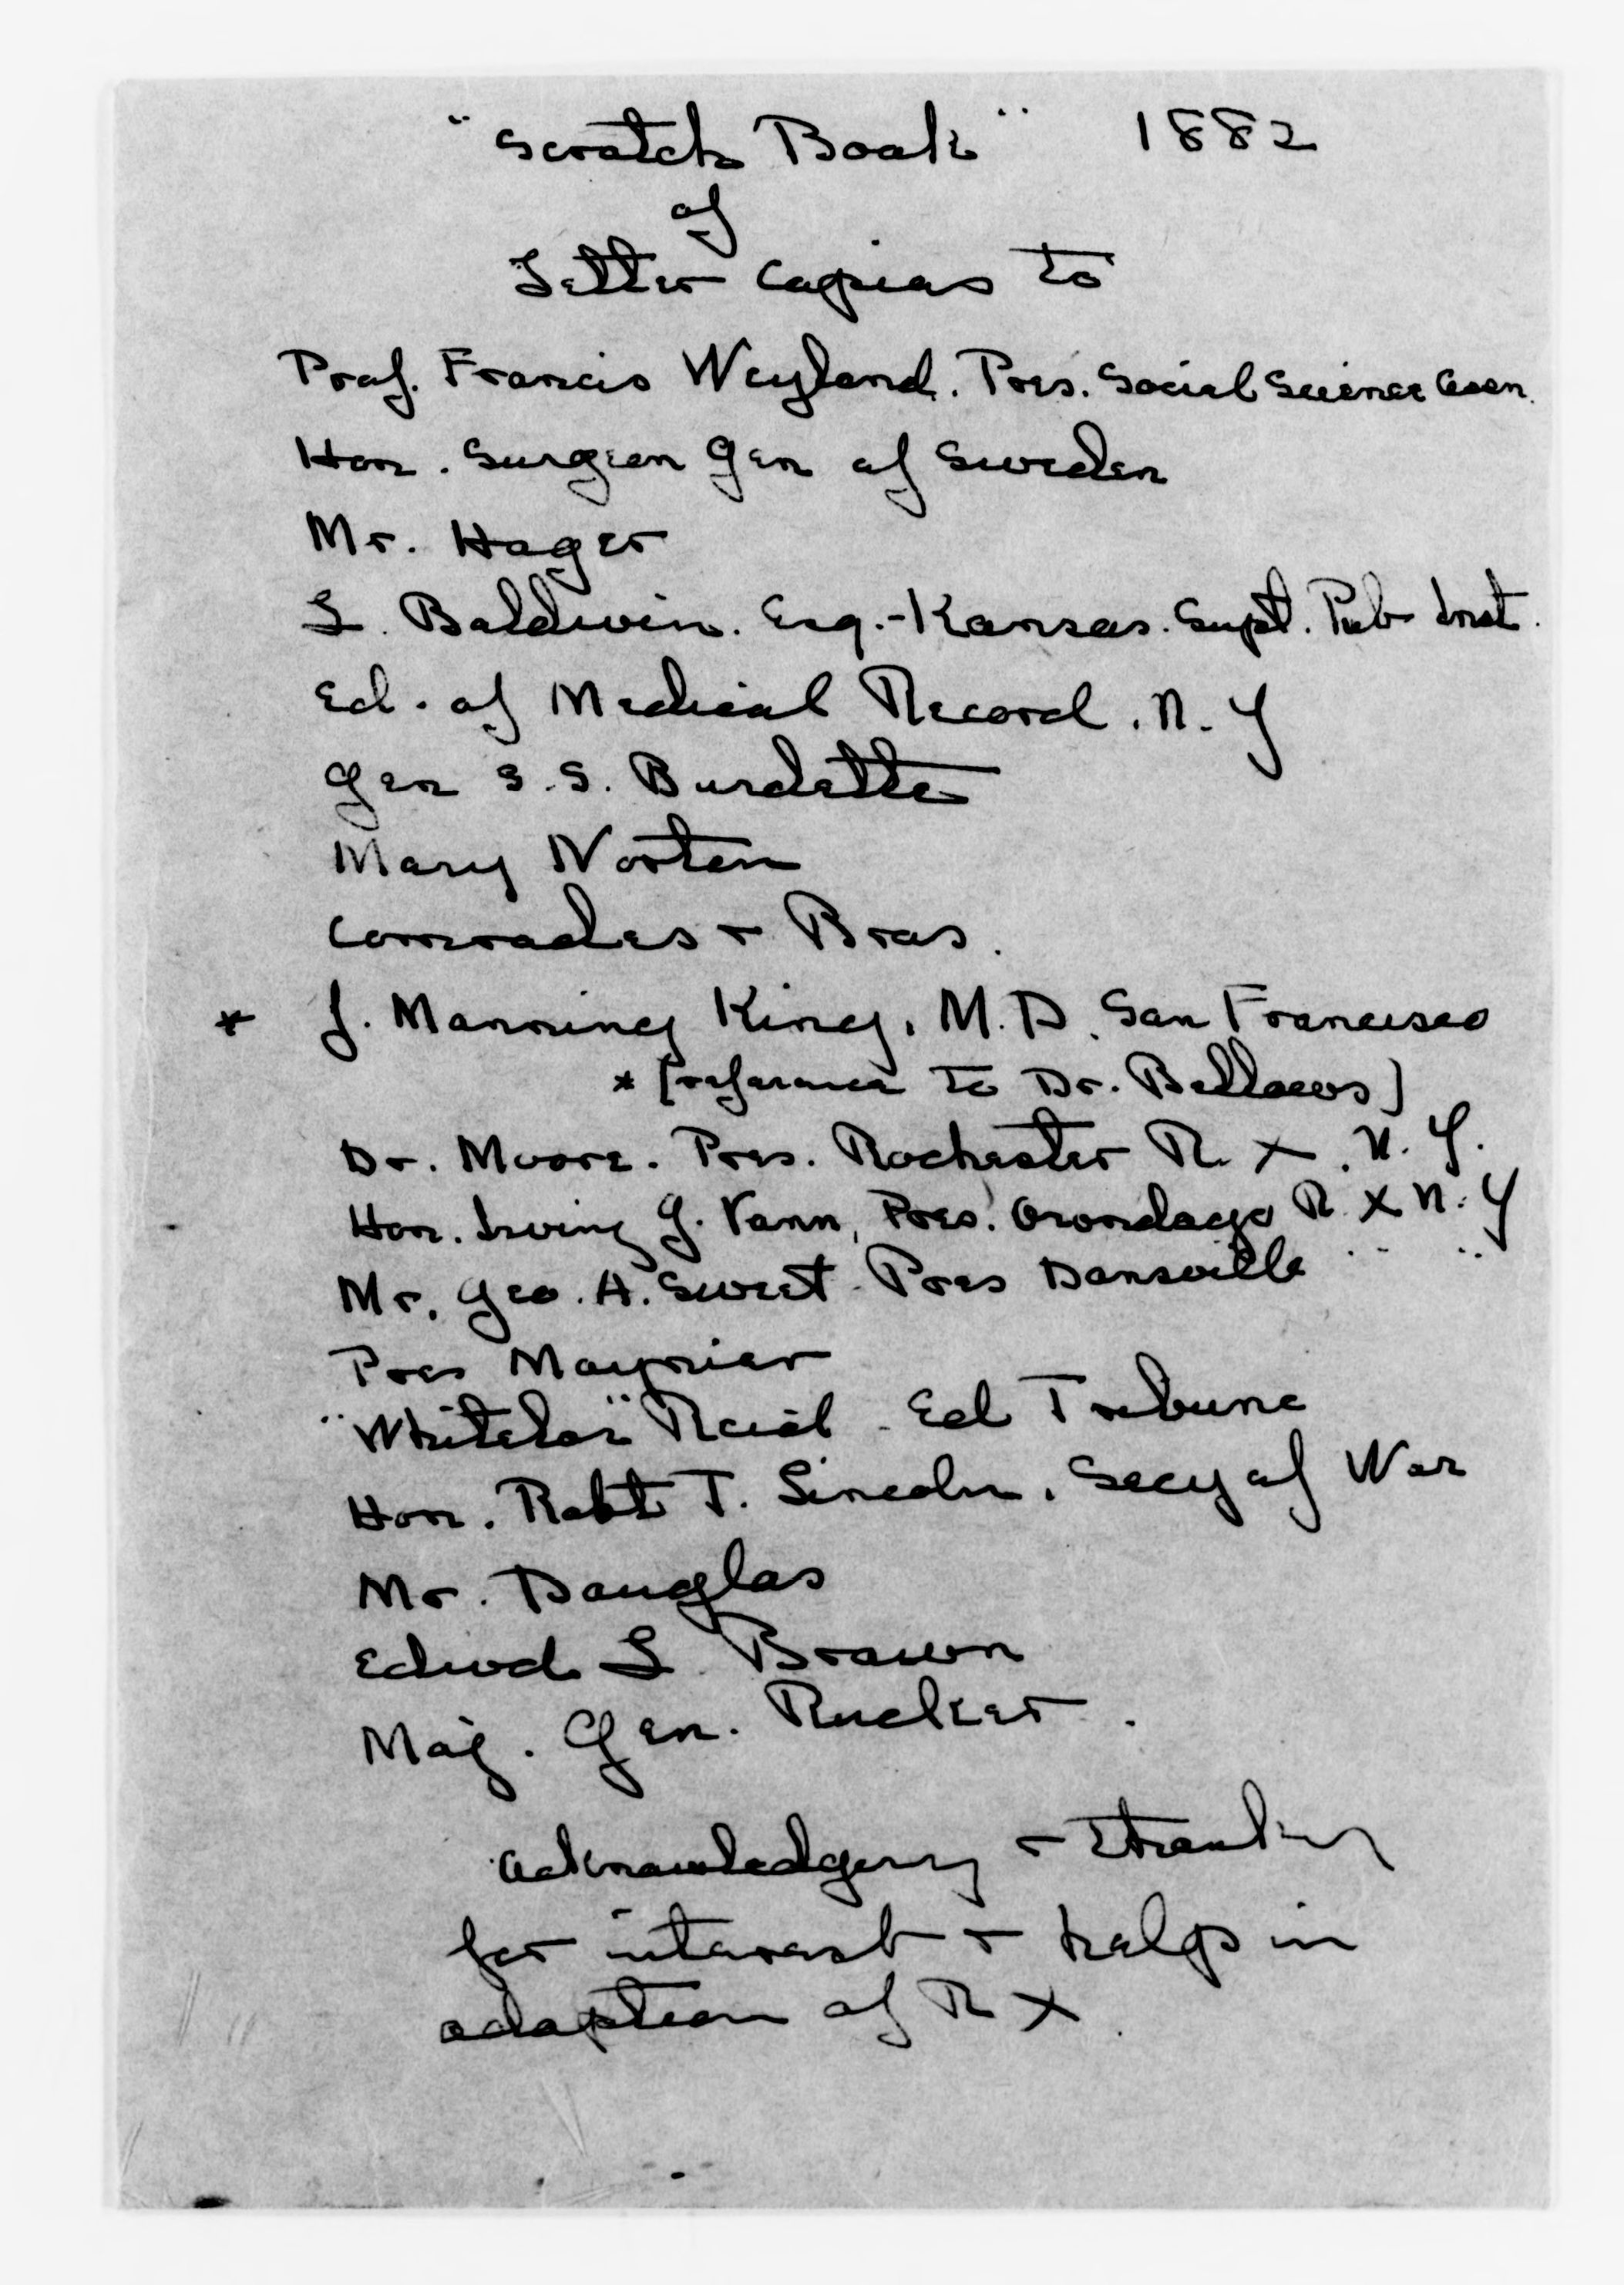 "Scratch Book" 1882
of
Letter copies to
Prof. Francis Weyland. Pres. Social Science Assn.
Hon. Surgeon Gen of Sweden
Mr. Hager
L. Baldwin. Esq. - Kansas. Supt. Pub Inst.
Ed. of Medical Record. N. Y
Gen S. S. Burdette
Mary Norton
Comrades & Bros.
* J. Manning King, M. D. San Francisco
* [reference to Dr. Bellows]
Dr. Moore. Pres. Rochester R. X. N. Y.
Hon. Irving G. Vann, Pres. Onondago R. X N. Y
Mr. Geo. A. Sweet. Pres Dansville " "
Pres
"Whitelar" Reid - Ed Tribune
Hon. Robt T. Lincoln. Secy of War
Mr. Douglas
Edwd L. Brown
Maj. Gen. Rucker.
acknowledging & thanking
for interest & help in
adoption of R X.